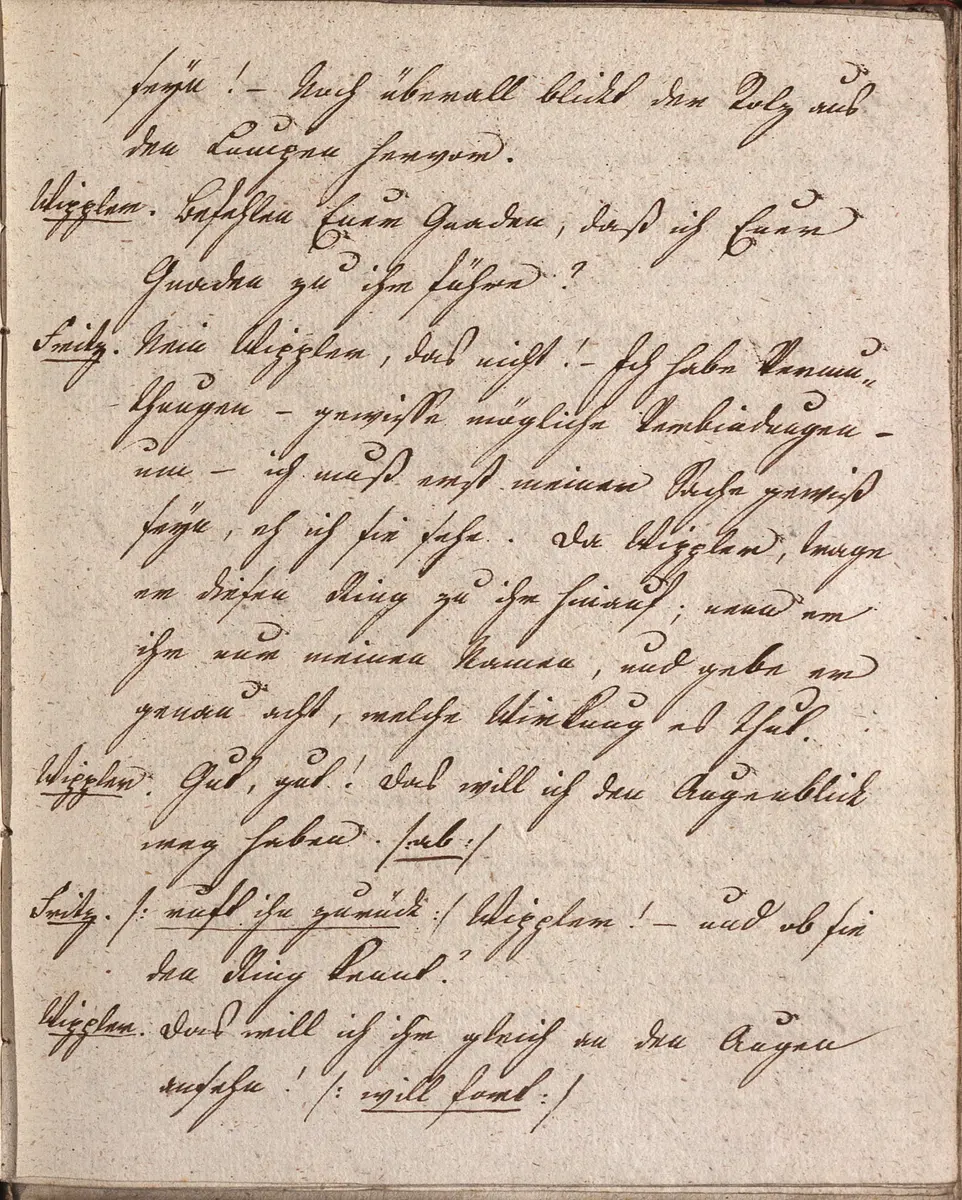 seyn! – Noch überall blickt der Stolz aus
den Lumpen hervor.
Wippler. Befehlen Euer Gnaden, daß ich Euer
Gnaden zu ihr führe?
Fritz. Nein Wippler, das nicht! – Ich habe Vermu„
thungen – gewisse mögliche Verbindungen –
nun – ich muß erst meiner Sache gewiß
seyn, eh ich sie sehe. Da Wippler, trage
er diesen Ring zu ihr hinauf; nenn er
ihr nur meinen Namen, und gebe er
genau acht, welche Wirkung es thut.
Wippler. Gut, gut! Das will ich den Augenblick
weg haben. /ab:/
Fritz. /: ruft ihn zurück:/ Wippler! – und ob sie
den Ring kennt?
Wippler. Das will ich ihr gleich an den Augen
ansehn! /: will fort:/